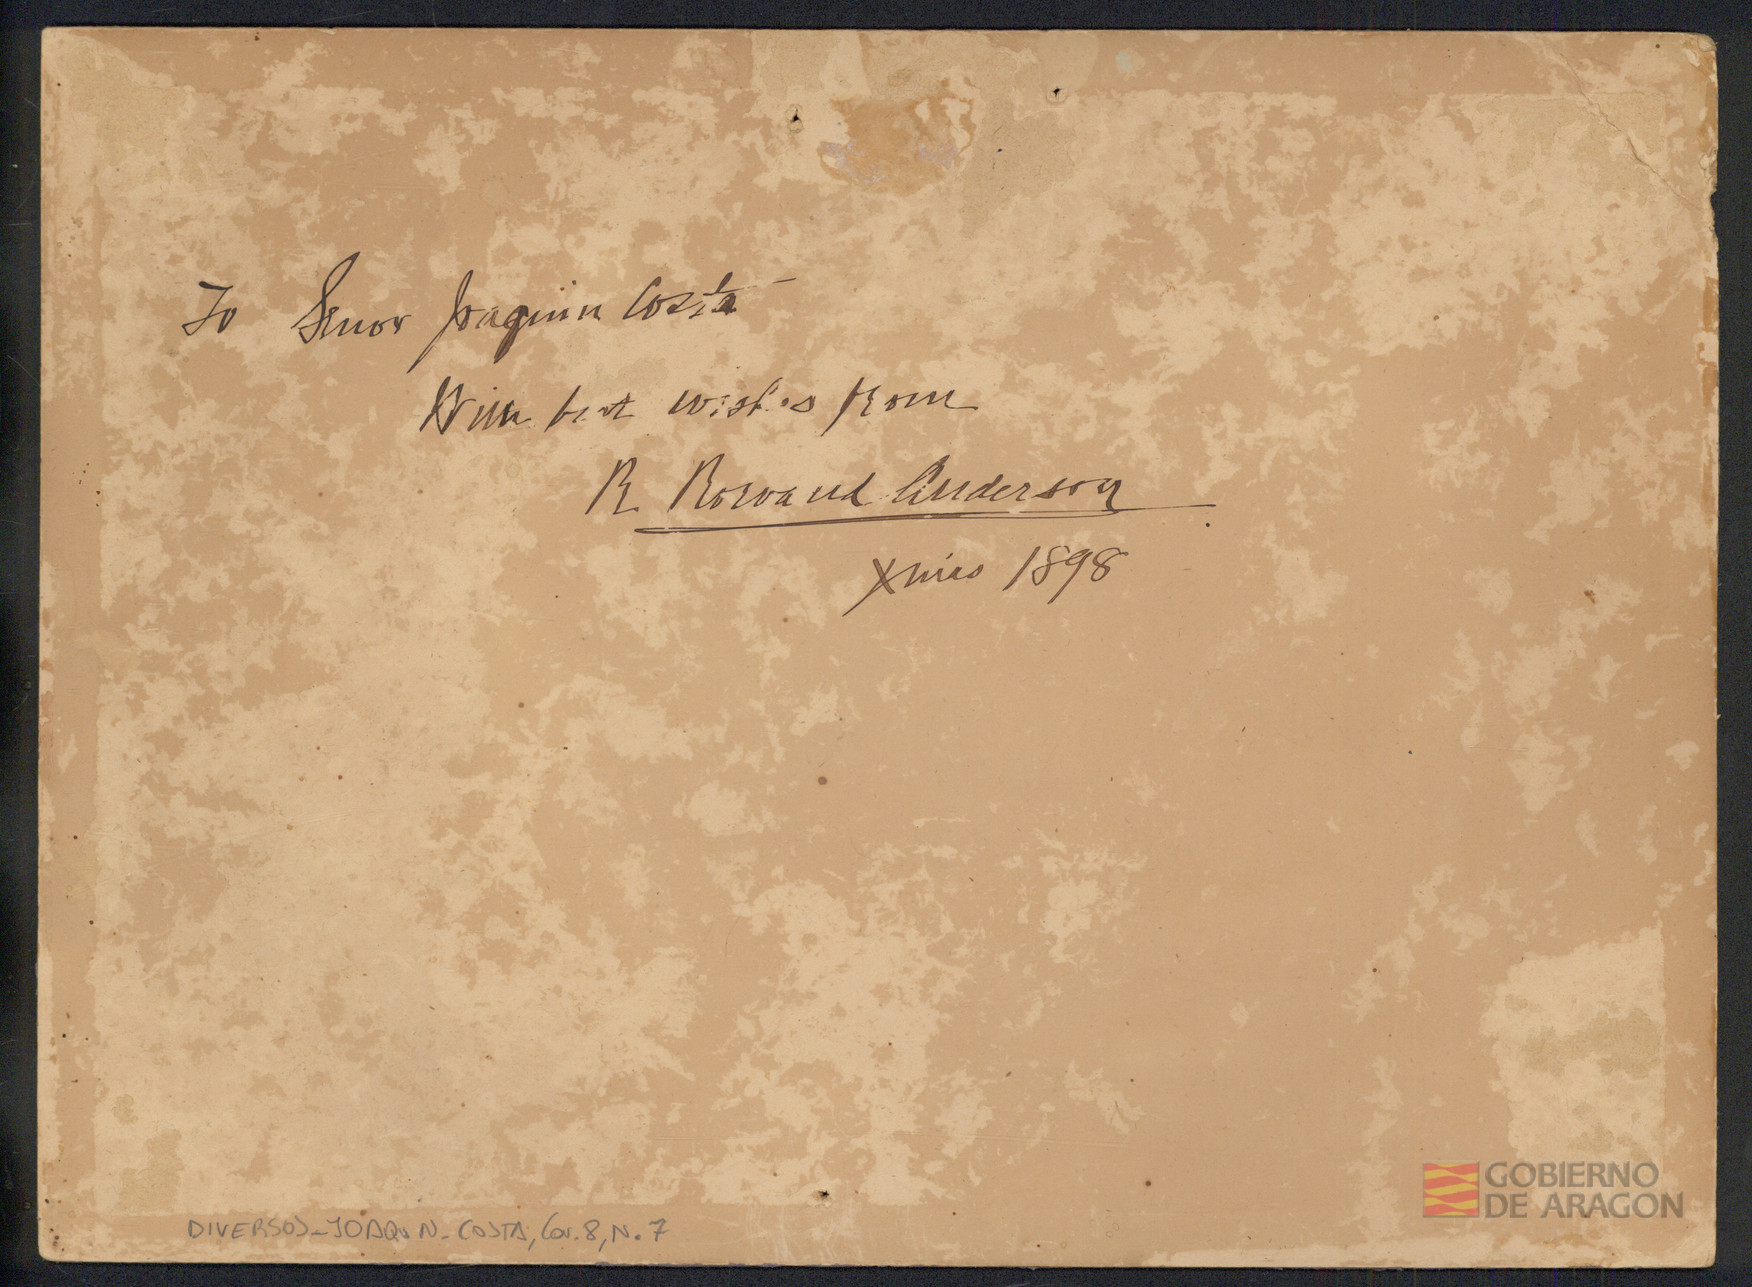 To Senor Joaquin Costa
With best wishes from
R. Rowand Anderson
Xmas 1898
DIVERSOS-JOAQUIN-COSTA, 8, N. 7
GOBIERNO
DE ARAGON